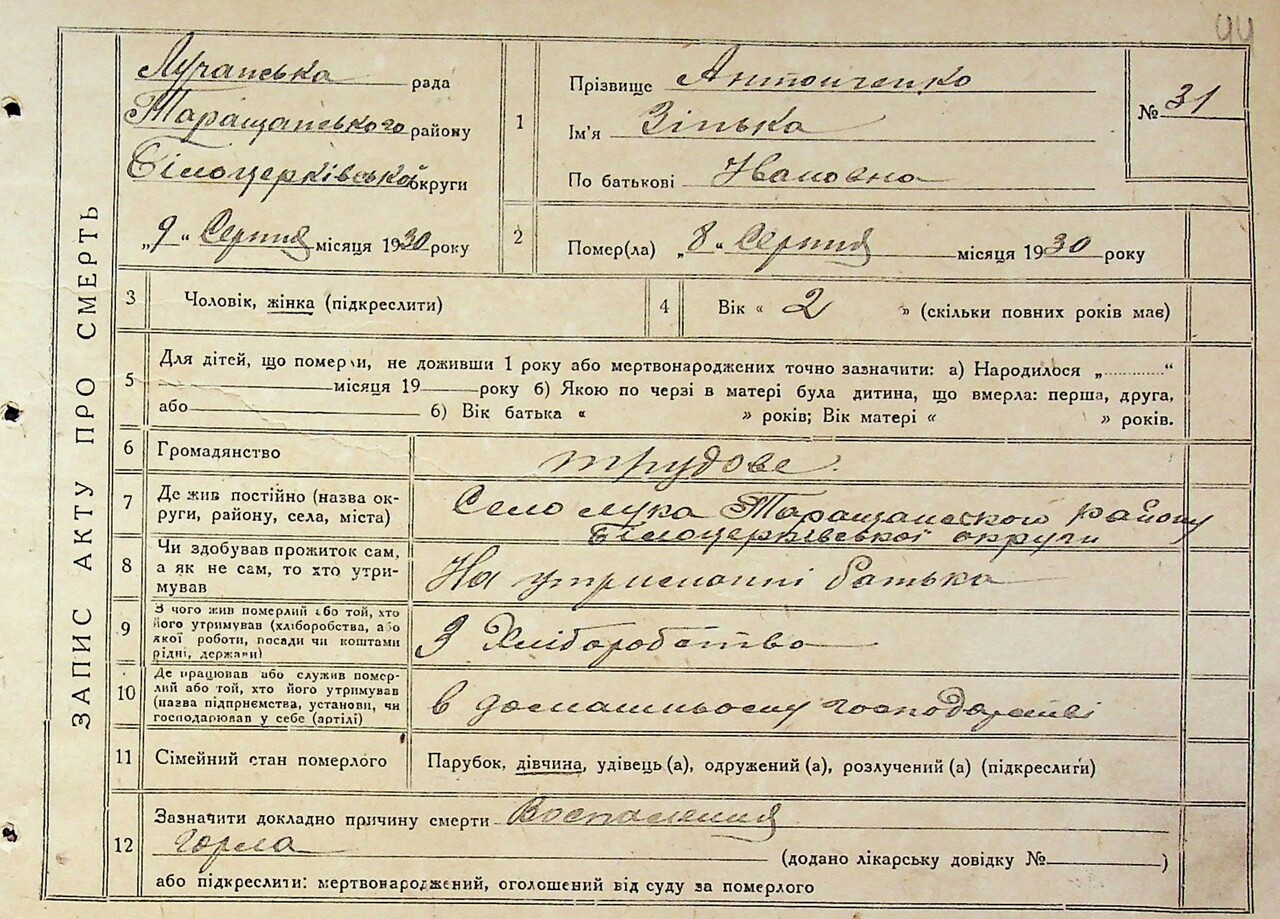 44
ЗАПИС АКТУ ПРО СМЕРТЬ
Лучанська рада
Таращанського району
Білоцерківської округи
„9“ Серпня місяця 1930 року
1
Прізвище Антонченко
Ім'я Зінька
По батькові Івановна
№ 31
2
Помер(ла) „8“ Серпня місяця 1930 року
3 Чоловік, жінка (підкреслити)
4 Вік « 2 » (скільки повних років має)
5
Для дітей, що померли, не доживши 1 року або мертвонароджених точно зазначити: а) Народилося „............“
місяця 19 року б) Якою по черзі в матері була дитина, що вмерла: перша, друга,
або б) Вік батька « » років; Вік матері « » років.
6 Громадянство трудове.
7 Де жив постійно (назва ок-
руги, району, села, міста)
Село лука Таращанского району
Білоцерківської округи
8 Чи здобував прожиток сам,
а як не сам, то хто утри-
мував
На утриманні батька
9 З чого жив померлий або той, хто
його утримував (хліборобства, або
якої роботи, посади чи коштами
рідні, держави)
З Хліборобство
10 Де працював або служив помер-
лий або той, хто його утримував
(назва підприємства, установи, чи
господарював у себе (артілі)
в домашньому господарстві
11 Сімейний стан померлого Парубок, дівчина, удівець (а), одружений (а), розлучений (а) (підкреслиги)
12 Зазначити докладно причину смерти Воспаления
горла (додано лікарську довідку № )
або підкреслити: мертвонароджений, оголошений від суду за померлого